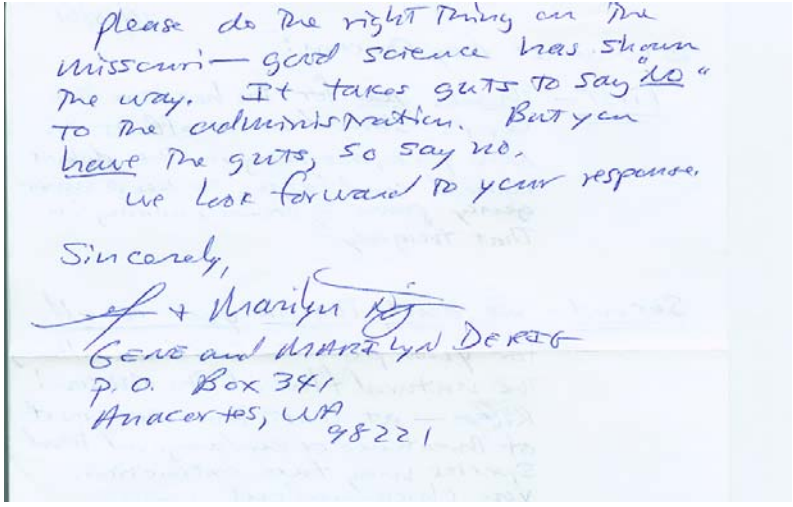 please do the right thing on the
missouri — good science has shown
the way. It takes guts to say "no"
to the administration. But you
have the guts, so say no.
we look forward to your response.
Sincerely,
+ Marilyn
GENE and MARILYN DERIG
P.O. Box 341
Anacortes, WA
98221